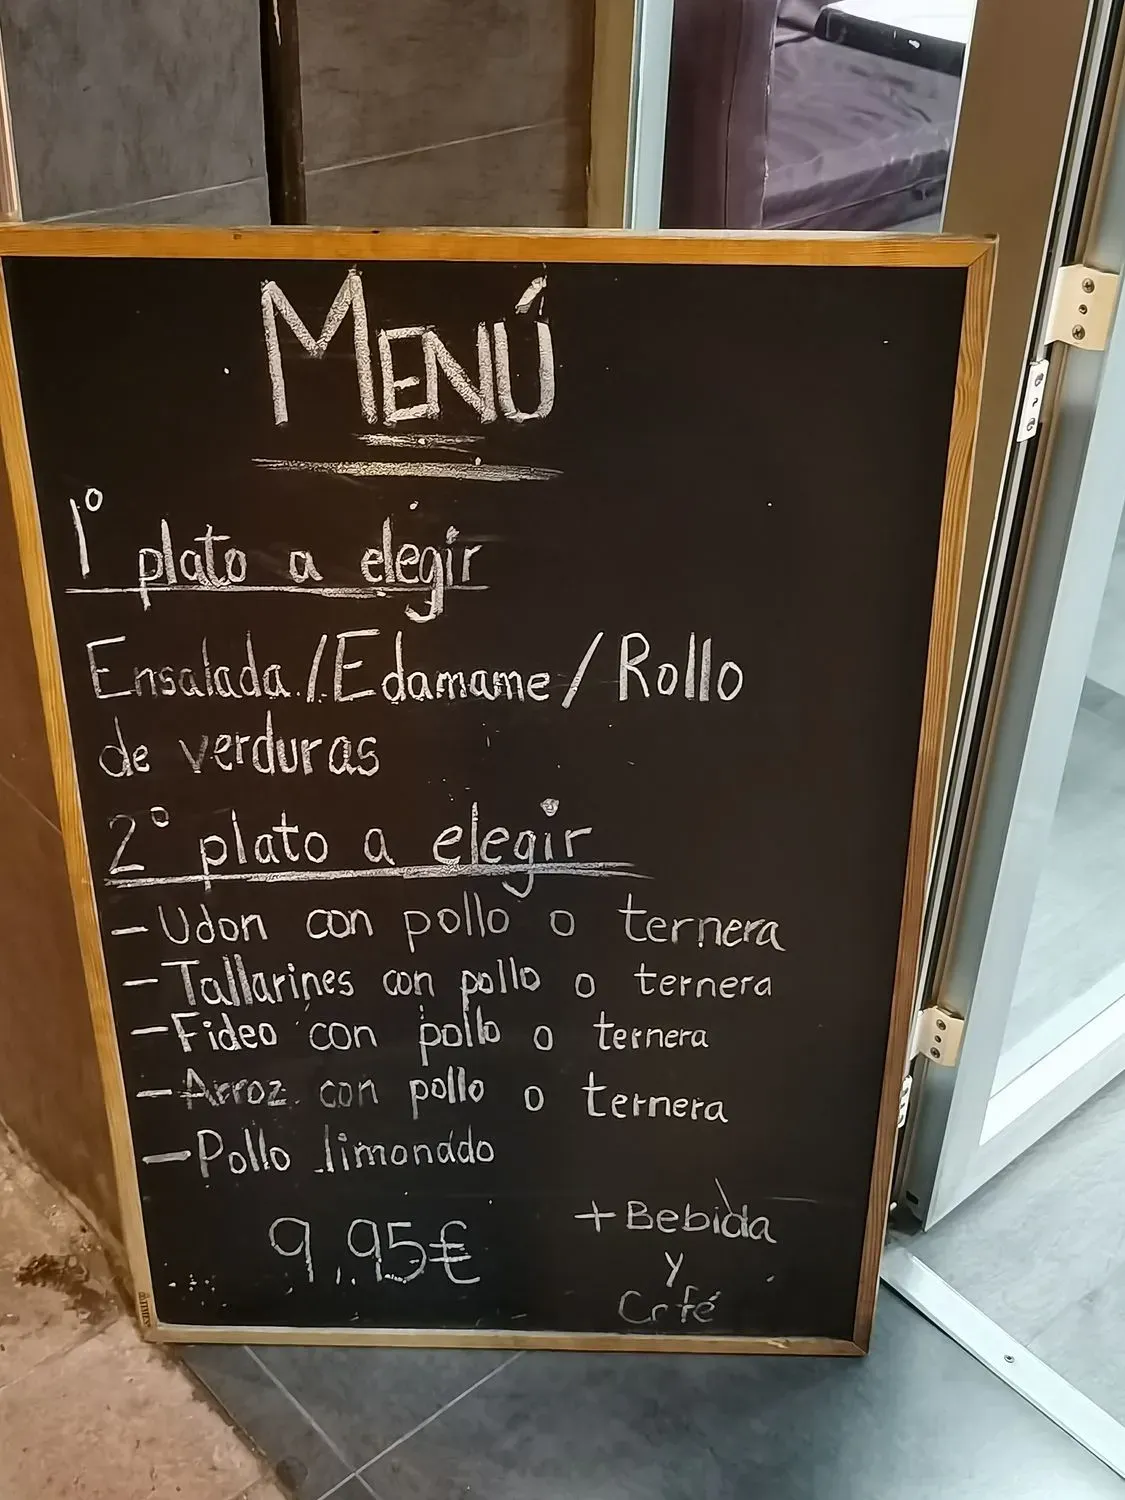 MENÚ
1º plato a elegir
Ensalada/Edamame/Rollo
de verduras
2º plato a elegir
- Udon con pollo o ternera
- Tallarines con pollo o ternera
- Fideo con pollo o ternera
- Arroz con pollo o ternera
- Pollo limonado
9,95€
+ Bebida
y
Café